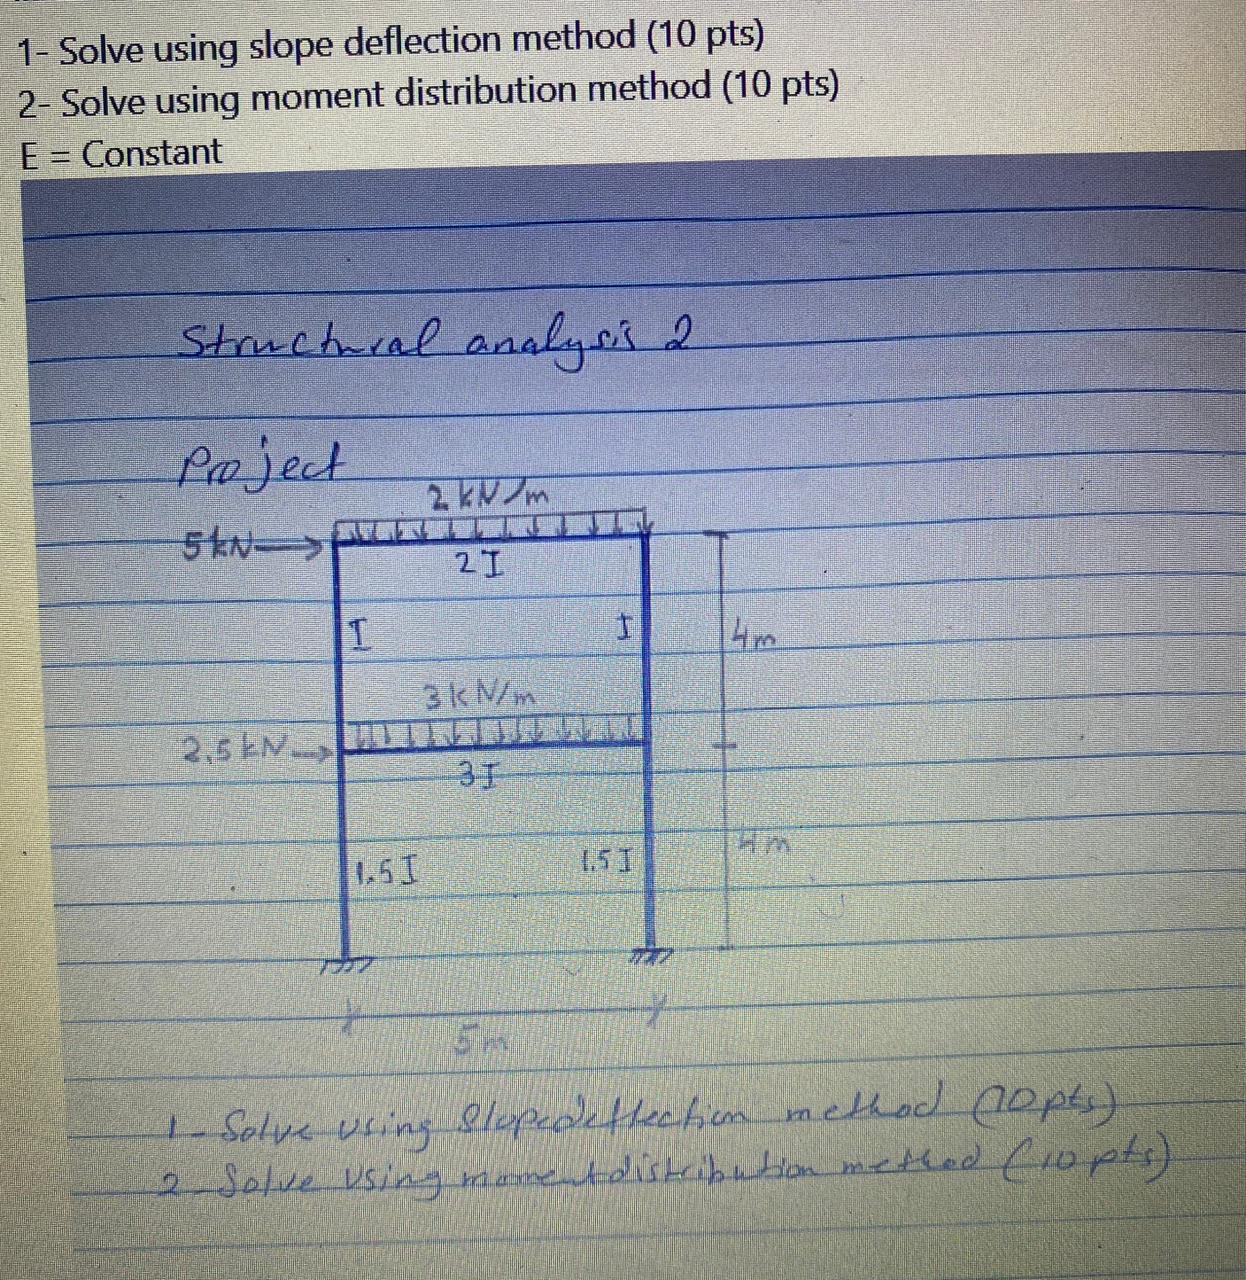 1- Solve using slope deflection method (10 pts)
2- Solve using moment distribution method (10 pts)
E = Constant
Structural analysis 2
Project
2 kN/m
5 kN
2I
I
I
4m
3 kN/m
2,5 kN
3I
1.5I
1.5 I
4m
5m
1- Solve using Slope deflection method (10 pts)
2- Solve using moment distribution method (10 pts)